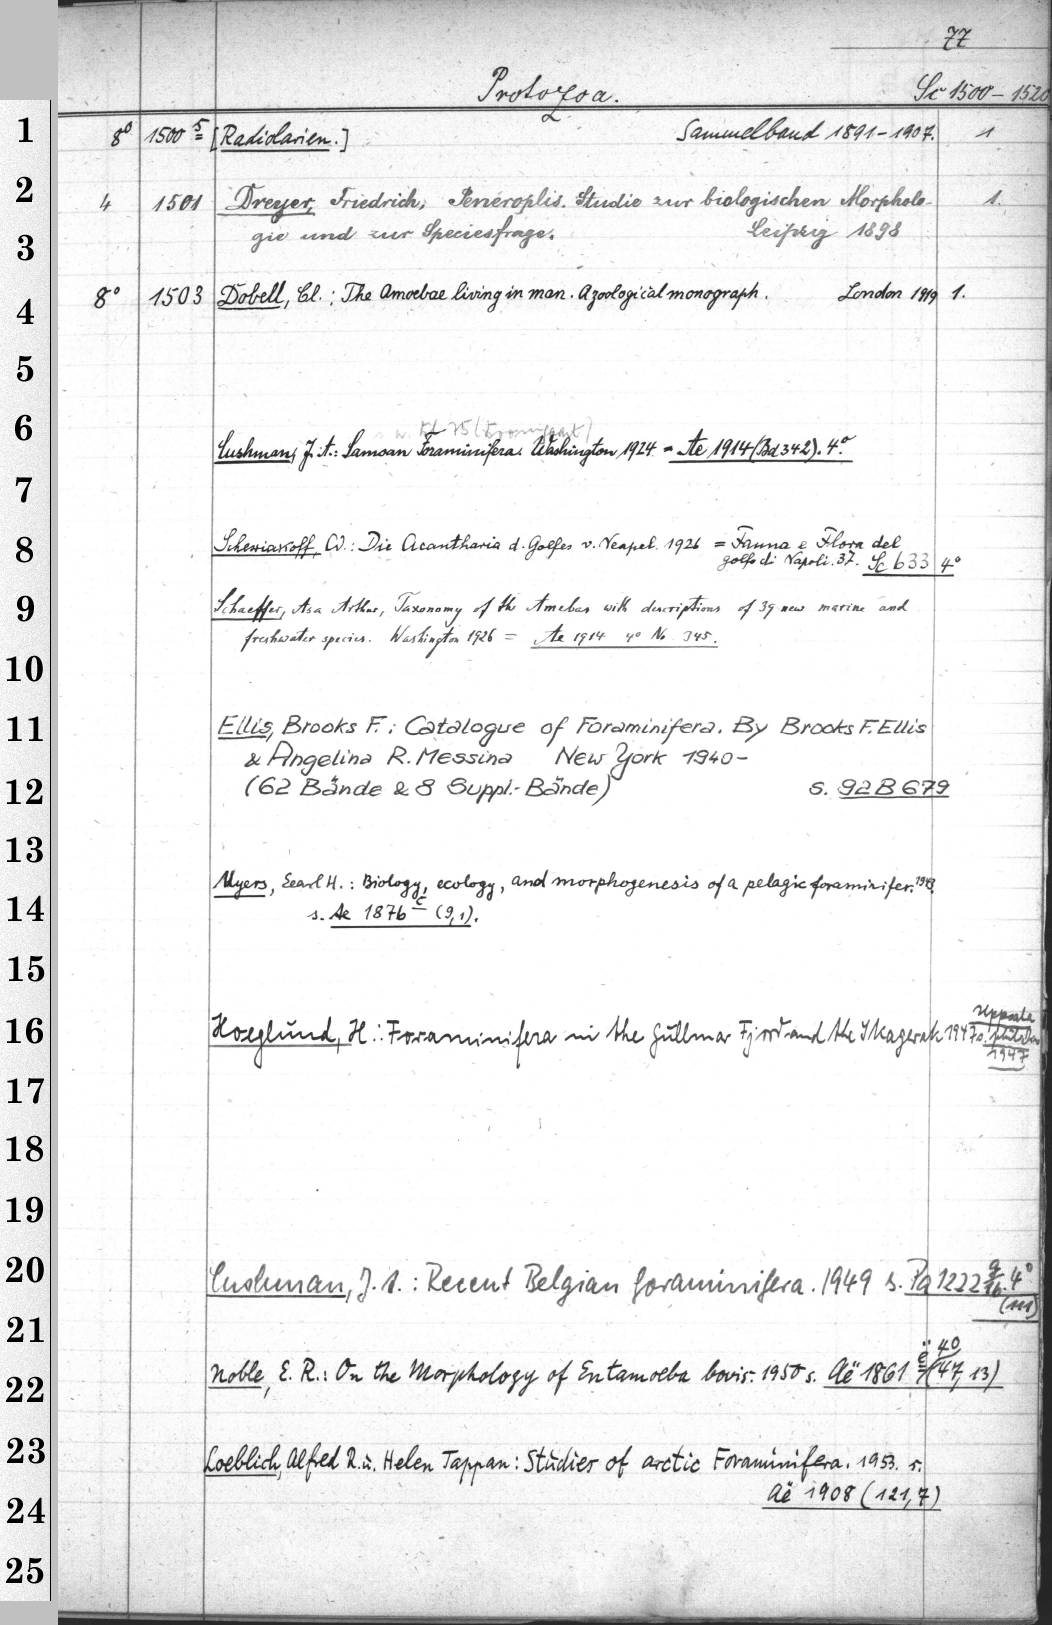 77
Protozoa.
Sc 1500-1520
1 8° 1500 5 [Radiolarien.] Sammelband 1891-1907. 1
2 4 1501 Dreyer, Friedrich, Peneroplis. Studie zur biologischen Morpholo- 1.
3 gie und zur Speciesfrage. Leipzig 1898
4 8° 1503 Dobell, Cl.: The Amoebae living in man. A zoological monograph. London 1919 1.
5
6
Cushman, J. A.: Samoan Foraminifera. Washington, 1924 = Ae 1914 (Bd 342). 4°
7
8 Schewiakoff, W.: Die Acantharia d. Golfes v. Neapel. 1926 = Fauna e Flora del
golfo di Napoli. 37. Sc 633 4°
9 Schaeffer, Asa Arthur, Taxonomy of the Amebas with descriptions of 39 new marine and
freshwater species. Washington 1926 = Ae 1914 4° No 345.
10
11 Ellis, Brooks F.: Catalogue of Foraminifera. By Brooks F. Ellis
& Angelina R. Messina New York 1940-
12 (62 Bände & 8 Suppl.-Bände) s. 92 B 679
13
Myers, Earl H.: Biology, ecology, and morphogenesis of a pelagic foraminifer. 1943.
14 s. Ae 1876 c (9,1).
15
Uppsala
16 Hoeglund, H.: Foraminifera in the Gullmar Fjord and the Skagerak 1947 s.
1947
17
18
19
20 Cushman, J. A.: Recent Belgian foraminifera. 1949 s. Pa 1222 4°
(111)
21
40
22 Noble, E. R.: On the Morphology of Entamoeba bovis. 1950 s. Aë 1861 (47, 13)
23 Loeblich, Alfred R. u. Helen Tappan: Studies of arctic Foraminifera. 1953. s.
24 Aë 1908 (121,7)
25